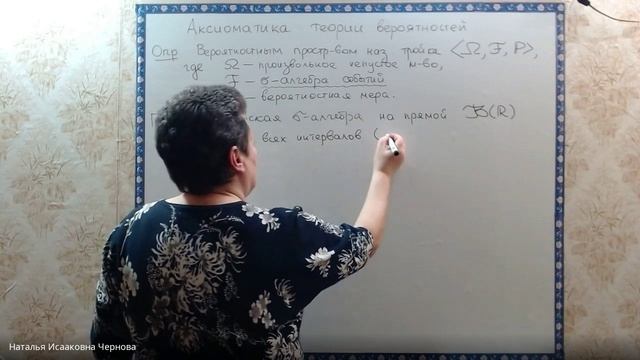 Аксиоматика теории вероятностей
Опр Вероятностным простр-вом наз. тройка ⟨Ω, F, P⟩,
где Ω – произвольное непустое мн-во,
F – σ-алгебра событий
– вероятностная мера.
ская σ-алгебра на прямой B(R)
всех интервалов (
Наталья Исааковна Чернова